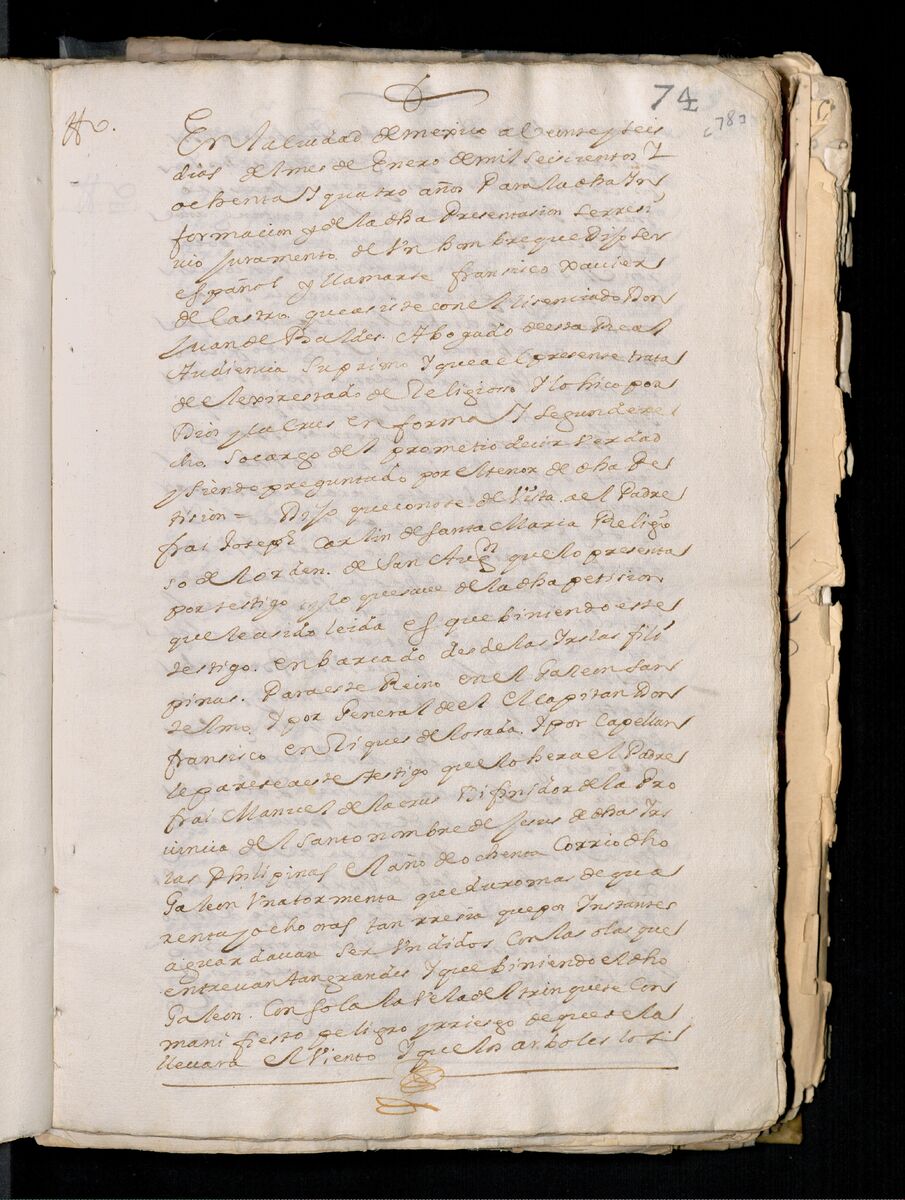 74
783
tto.
En la ciudad de mexico a Veinte y seis
dias del mes de Enero de mil seiscientos Y
ochenta Y quatro años Para la dha Yn
formacion y de la dha Presentasion se rresi
uio Juramento de Vn hombre que Dijo ser
español y llamarse fransisco xavier
de Castro que asiste con el lisenciado Don
Juan de Baldes Abogado de esta Real
Audiencia Su primo Y que al presente trata
de el expresado de Religioso Y lo hiço por
Dios y la Crus en forma Y segun dere
cho socargo del prometio decir Verdad
y siendo preguntado por el tenor de dha Pe
tision = Dijo que conose de Vista a el Padre
frai Joseph Carlin de Santa Maria Religio
so del orden de San Augn que lo presenta
por testigo y lo que saue de la dha petision
que le a sido leida es que biniendo este
testigo enbarcado desde las Yslas fili
pinas Para este Reino en el Galeon San
telmo Y por General de el El Capitan Don
fransisco enRiques de losada Y por Capellan
le parese a este testigo que lo hera el Padre
frai Manuel de la crus Difinidor de la Pro
uincia del Santo nombre de Jesus de dhas Ys
las Philipinas el año de ochenta Corrio dho
Galeon Vna tormenta que duro mas de qua
renta y ocho oras tan rresia que por Ynstantes
aguardauan ser Vndidos Con las olas que
entrauan tan grandes Y que biniendo el dho
Galeon Con sola la Vela del trinquete Con
manifiesto peligro y rriesgo de que se la
lleuara el Viento Y que los arboles los